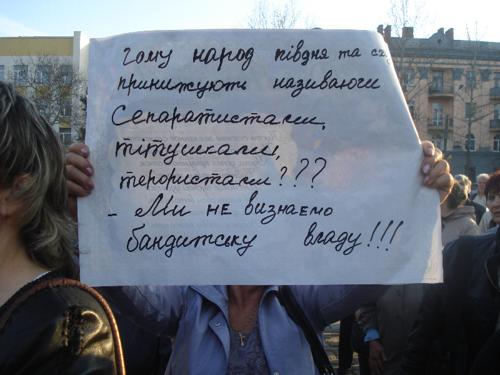 Чому народ півдня та сх.
принижують називаючи
Сепаратистами,
тітушками,
терористами???
- Ми не визнаємо
бандитську владу!!!